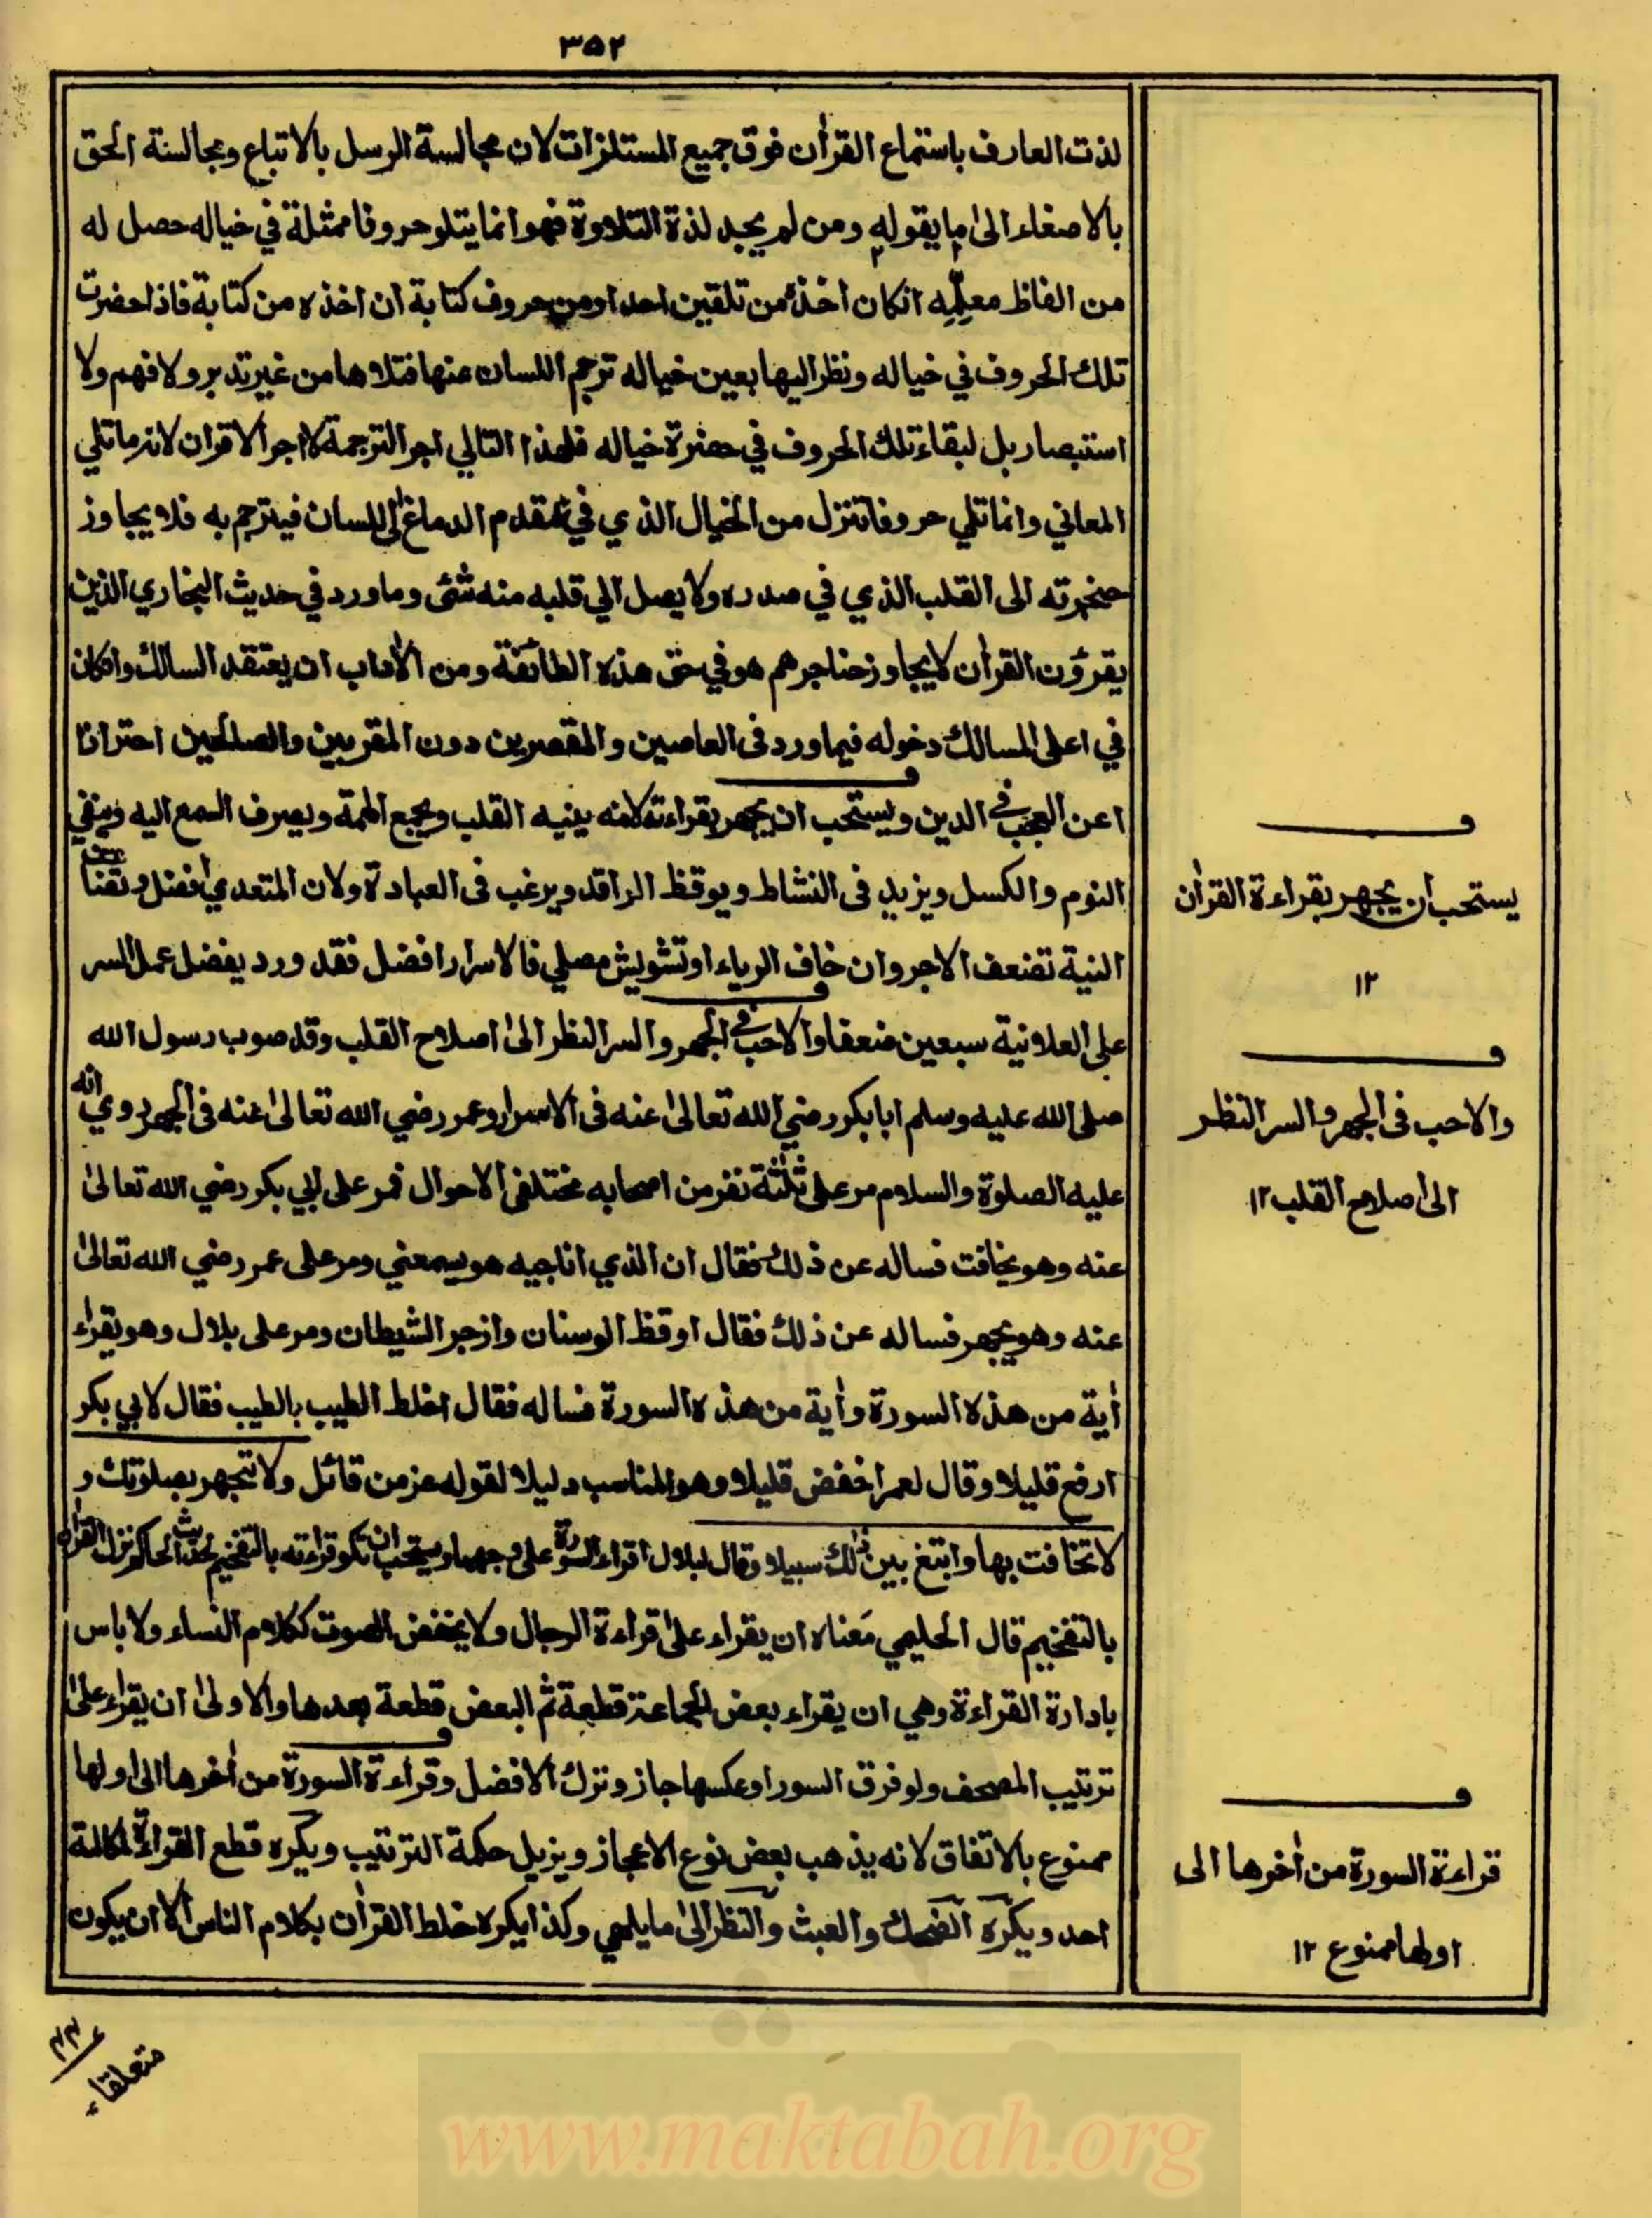 ٣٥٢
لذت العارف باستماع القرأن فوق جميع المستلزات لان مجالسة الرسل بالاتباع ومجالسة الحق
بالاصغاء الىٰ ما يقوله ومن لم يجد لذة التلاوة فهو انما يتلو حروفا ممثلة في خياله حصل له
من الفاظ معلّمِه انكان اخذه من تلقين احد او من حروف كتابة ان اخذه من كتابة فاذا حضرت
تلك الحروف في خياله ونظر اليها بعين خياله ترجم اللسان عنها فتلاها من غير تدبر ولا فهم ولا
استبصار بل لبقاء تلك الحروف في حضرة خياله فلهذا التالي اجر الترجمة لا اجر القران لانه ما تلي
المعاني وانما تلي حروفا تنزل من الخيال الذي في مقدم الدماغ الى اللسان فيترجم به فلا يجاوز
حنجرته الى القلب الذي في صدره ولا يصل الي قلبه منه شئ وما ورد في حديث البخاري الذين
يقرؤن القرأن لا يجاوز حناجرهم هو في حق هذه الطائفة ومن الأداب ان يعتقد السالك وانكان
في اعلى المسالك دخوله فيما ورد فى العاصين والمقصرين دون المقربين والصالحين احترازا
اعن العجب فى الدين ويستحب ان يجهر بقراءته لانه ينبه القلب ويجمع الهمة ويصرف السمع اليه وينفي
النوم والكسل ويزيد فى النشاط ويوقظ الراقد ويرغب فى العبادة ولان المتعدي افضل و
النية تضعف الاجر وان خاف الرياء او تشويش مصلي فالاسرار افضل فقد ورد يفضل عمل السر
على العلانية سبعين ضعفا والاحب فى الجهر والسر النظر الىٰ اصلاح القلب وقد صوب رسول الله
صلى الله عليه وسلم ابا بكر رضي الله تعالىٰ عنه فى الاسرار وعمر رضي الله تعالىٰ عنه فى الجهر وروي انه
عليه الصلوة والسلام مر على ثلثة نفر من اصحابه مختلفى الاحوال فمر على ابي بكر رضي الله تعالىٰ
عنه وهو يخافت فساله عن ذلك فقال ان الذي اناجيه هو يسمعني ومر على عمر رضي الله تعالىٰ
عنه وهو يجهر فساله عن ذلك فقال اوقظ الوسنان وازجر الشيطان ومر على بلال وهو يقراء
أية من هذه السورة وأية من هذه السورة فساله فقال اخلط الطيب بالطيب فقال لابي بكر
ارفع قليلا وقال لعمر اخفض قليلا وهو المناسب دليلا لقوله عز من قائل ولا تجهر بصلوتك و
لا تخافت بها وابتغ بين ذٰلك سبيلا وقال لبلال اقراء السورة على وجهها ويستحب ان تكو قراءته بالتفخيم لحديث الحاكم نزل القرأن
بالتفخيم قال الحليمي معناه ان يقراء علىٰ قراءة الرجال ولا يخفض الصوت ككلام النساء ولا باس
بادارة القراءة وهي ان يقراء بعض الجماعة قطعة ثم البعض قطعة بعدها والاولىٰ ان يقراء علىٰ
ترتيب المصحف ولو فرق السور او عكسها جاز وترك الافضل وقراءة السورة من أخرها الىٰ اولها
ممنوع بالاتفاق لانه يذهب بعض نوع الاعجاز ويزيل حكمة الترتيب ويكره قطع القراءة لمكالمة
احد ويكره الضحك والعبث والنظر الىٰ ما يلهي وكذا يكره خلط القرأن بكلام الناس الا ان يكون
يستحب ان يجهر بقراءة القرأن
١٢
والاحب فى الجهر والسر النظر
الىٰ اصلاح القلب ١٢
قراءة السورة من أخرها الى
اولها ممنوع ١٢
متعلقاء
www.maktabah.org